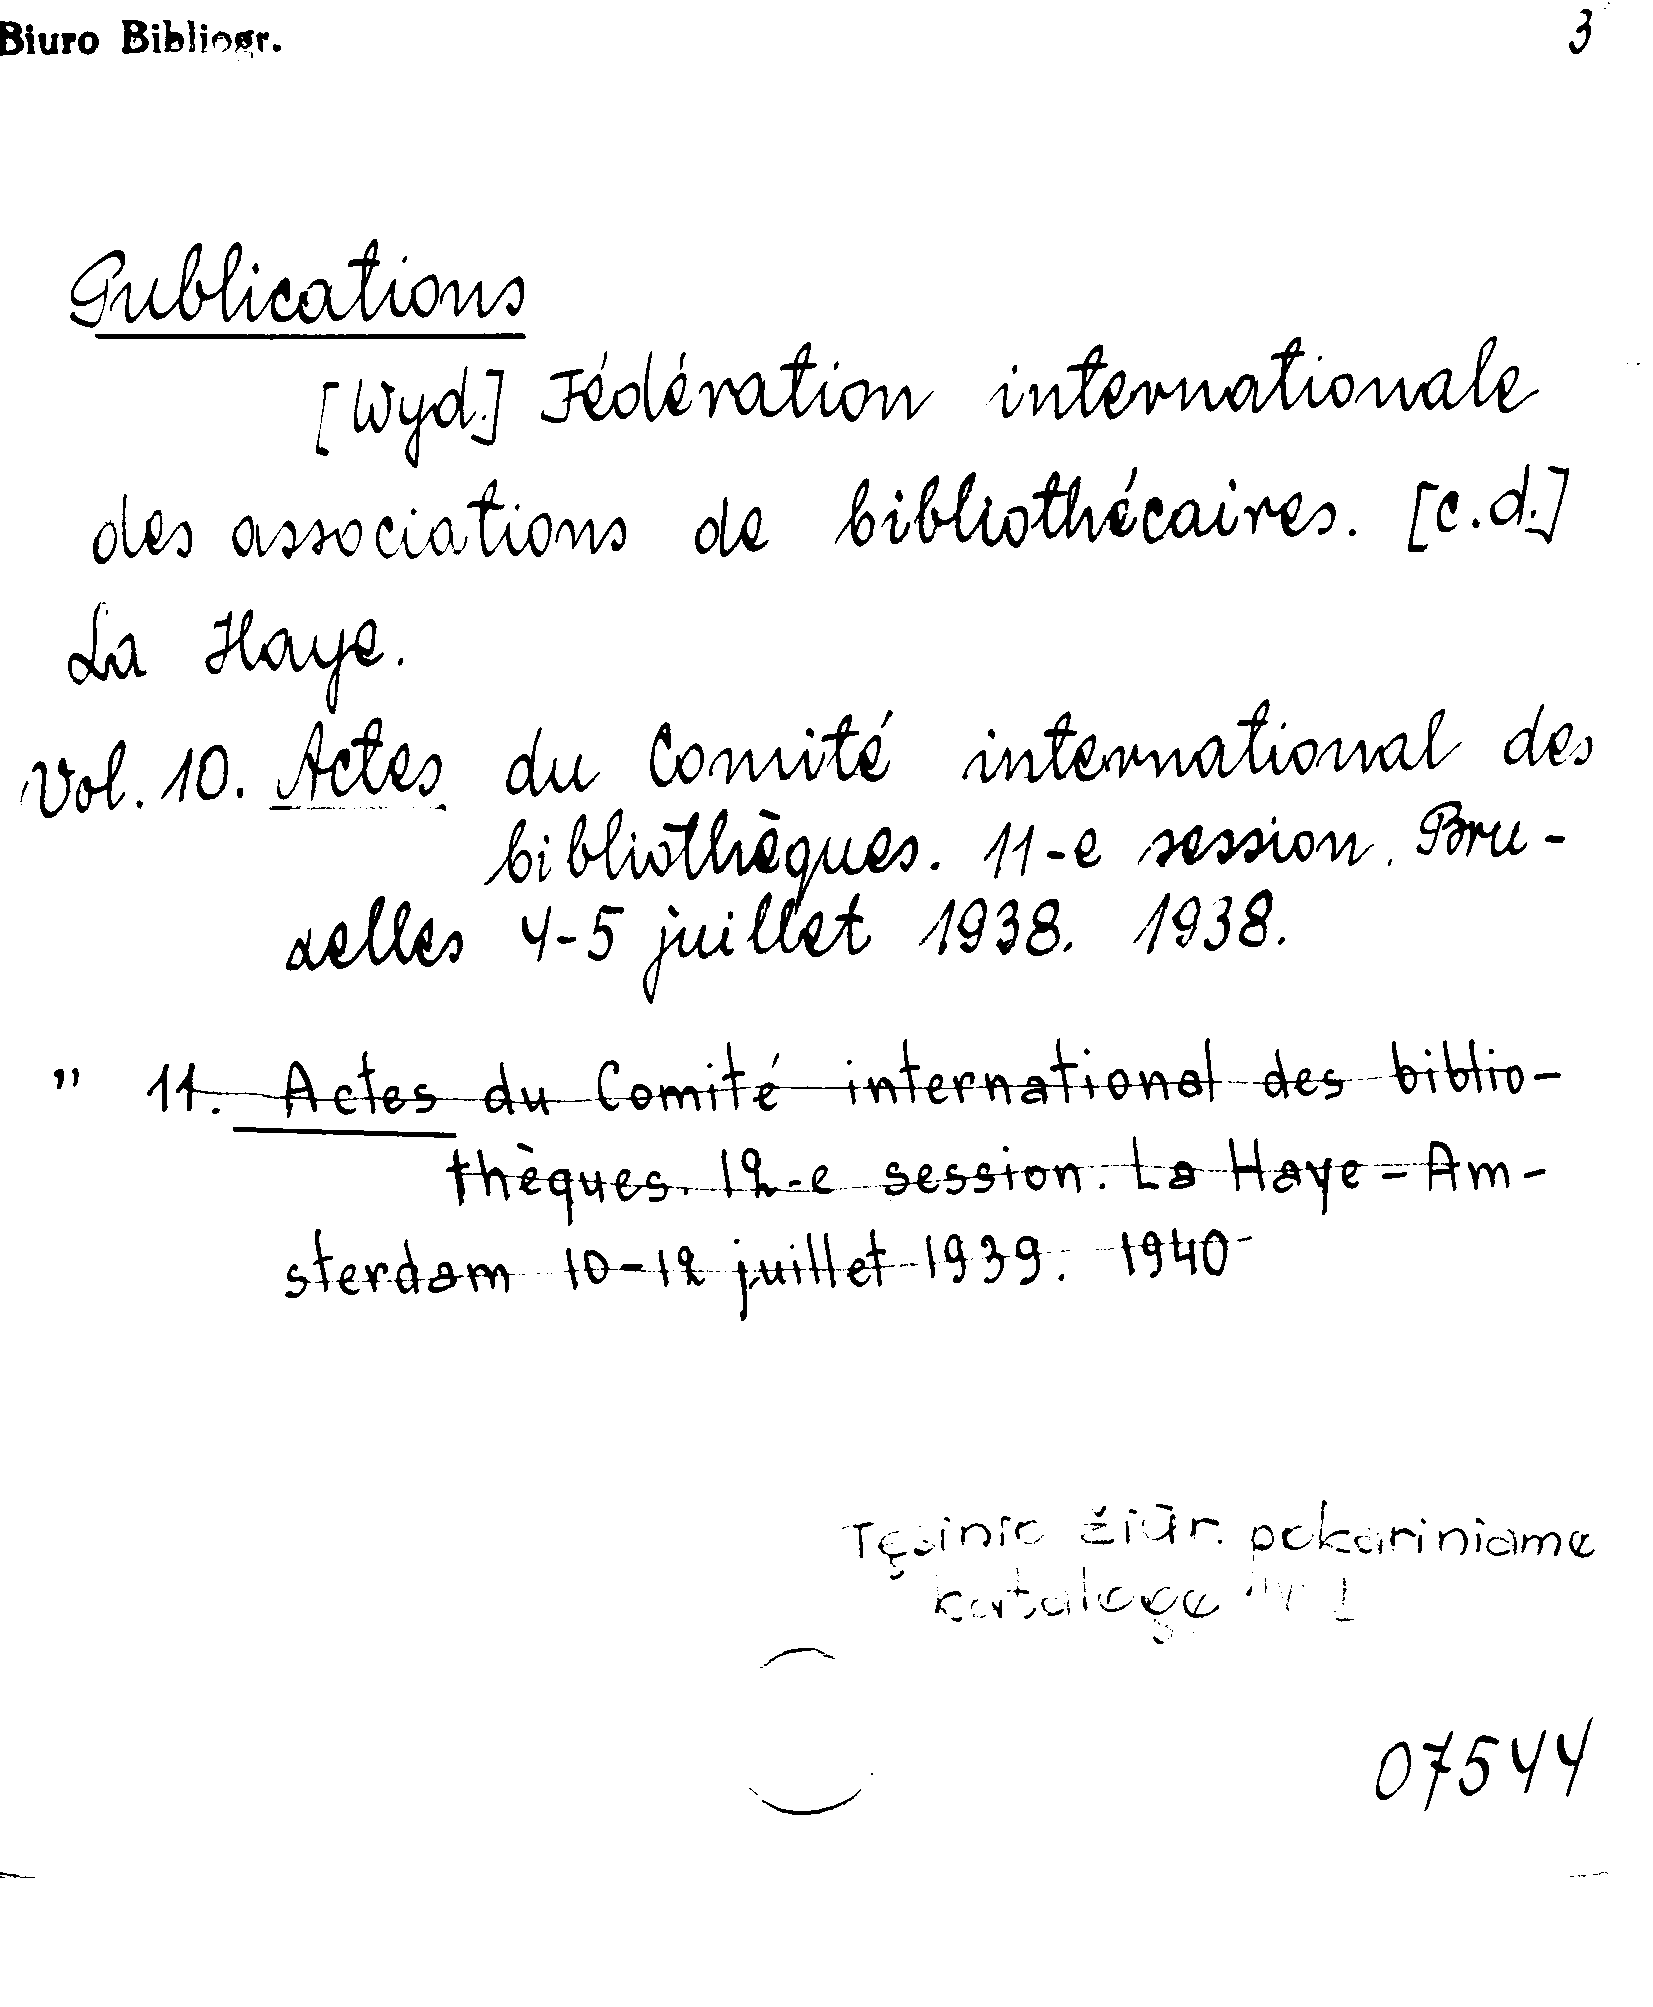 Biuro Bibliogr. 3
Publications
[Wyd.] Fédération internationale
des associations de bibliothécaires. [c.d.]
La Haye.
Vol. 10. Actes du Comité international des
bibliothèques. 11-e session. Bru-
xelles 4-5 juillet 1938. 1938.
" 11. Actes du Comité international des biblio-
thèques. 12-e session. La Haye - Am-
sterdam 10-12 juillet 1939. 1940
Tęsinio žiūr. pokariniame
kataloge
07544